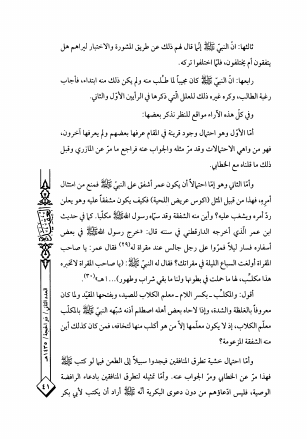 ثالثها: انّ النبيّ ﷺ إنّما قال لهم ذلك عن طريق المشورة والاختبار ليراهم هل
يتفقون أم يختلفون، فلمّا اختلفوا تركه.
رابعها: انّ النبيّ ﷺ كان مجيباً لما طُلب منه ولم يكن ذلك منه ابتداء، فأجاب
رغبة الطالب، وكره غيره ذلك للعلل التي ذكرها في الرأيين الأوّل والثاني.
وفي كلّ هذه الآراء مواقع للنظر نذكر بعضها:
أمّا الأوّل وهو احتمال وجود قرينة في المقام عرفها بعضهم ولم يعرفها آخرون،
فهو من واهي الاحتمالات وقد مرّ مثله والجواب عنه فراجع ما مرّ عن المازري وقبل
ذلك ما قلناه مع الخطابي.
وأمّا الثاني وهو إمّا احتمالاً أن يكون عمر أشفق على النبيّ ﷺ فمنع من امتثال
أمره، فهذا من قبيل المثل (أكوس عريض اللحية) فكيف يكون مشفقاً عليه وهو يعلن
ردّ أمره ويشغب عليه؟ وأين منه الشفقة وقد سمّاه رسول الله ﷺ مكلّباً. كما في حديث
ابن عمر الّذي أخرجه الدارقطني في سننه قال: (خرج رسول الله ﷺ في بعض
أسفاره فسار ليلاً فمرّوا على رجل جالس عند مقراة له(٢٩) فقال عمر: يا صاحب
المقراة أولغت السباع الليلة في مقراتك؟ فقال له النبيّ ﷺ: (يا صاحب المقراة لا تخبره
هذا مكلّب، لها ما حملت في بطونها ولنا ما بقي شراب وطهور)...اهـ(٣٠).
أقول: والمكلّب ـ بكسر اللام ـ معلم الكلاب للصيد، وبفتحها المقيّد ولما كان
معروفاً بالغلظة والشدة، وإذا لاحاه بعض أهله اصطلم أذنه شبّهه النبيّ ﷺ بالمكلّب
معلّم الكلاب، إذ لا يكون معلّمها إلاّ من هو أكلب منها لتخافه، فمن كان كذلك أين
منه الشفقة المزعومة؟
وأمّا احتمال خشية تطرق المنافقين فيجدوا سبيلاً إلى الطعن فيما لو كتب ﷺ
فهذا مرّ عن الخطابي ومرّ الجواب عنه. وأمّا تمثيله لتطرق المنافقين بادعاء الرافضة
الوصية، فليس ادّعاؤهم من دون دعوى البكرية أنّه ﷺ أراد أن يكتب لأبي بكر
العدد الثاني / ذو الحجة / ١٤٣٥هـ
٤١